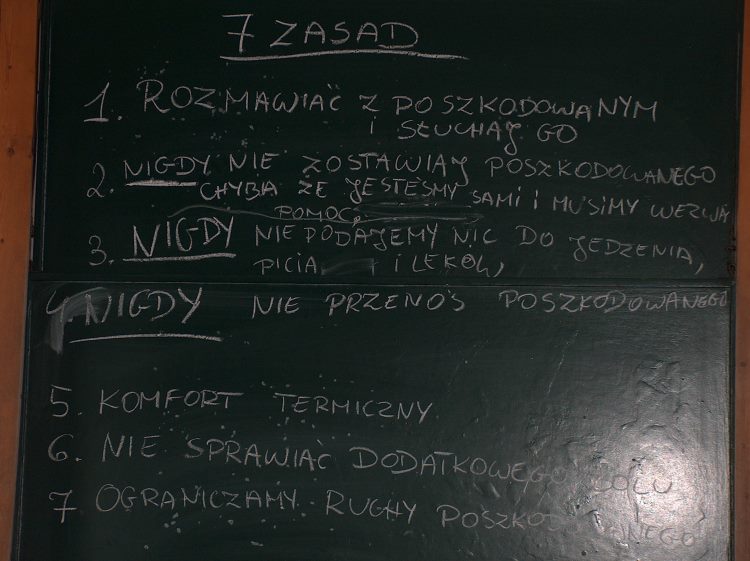 7 ZASAD
1. ROZMAWIAĆ Z POSZKODOWANYM
I SŁUCHAJ GO
2. NIGDY NIE ZOSTAWIAJ POSZKODOWANEGO
CHYBA ŻE JESTEŚMY SAMI I MUSIMY WEZWAĆ
POMOC.
3. NIGDY NIE PODAJEMY NIC DO JEDZENIA,
PICIA I LEKÓW,
4. NIGDY NIE PRZENOŚ POSZKODOWANEGO
5. KOMFORT TERMICZNY
6. NIE SPRAWIAĆ DODATKOWEGO BÓLU
7 OGRANICZAMY RUCHY POSZKODOWANEGO